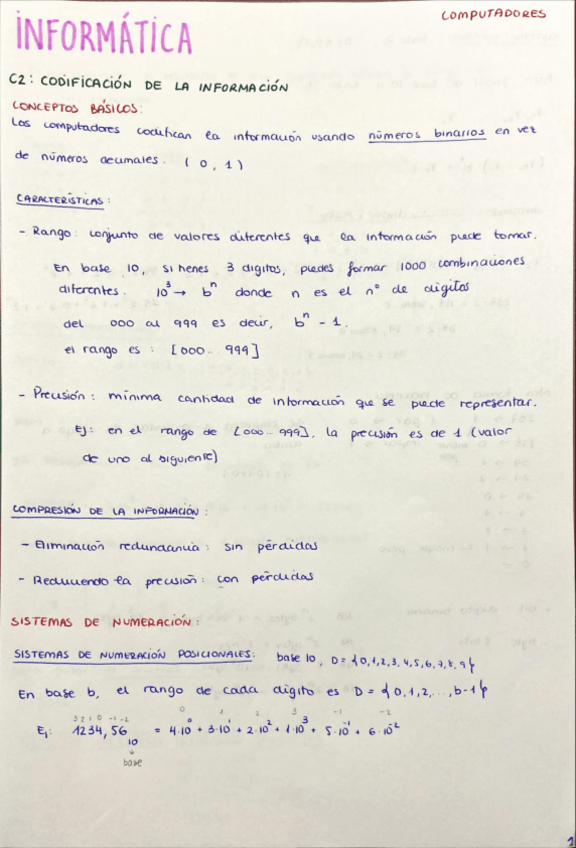 COMPUTADORES
INFORMÁTICA
C2: CODIFICACIÓN DE LA INFORMACIÓN
CONCEPTOS BÁSICOS:
Los computadores codifican la información usando números binarios en vez
de números decimales. (0, 1)
CARACTERÍSTICAS:
- Rango: conjunto de valores diferentes que la información puede tomar.
En base 10, si tienes 3 dígitos, puedes formar 1000 combinaciones
diferentes. 10³ → bⁿ donde n es el nº de dígitos
del 000 al 999 es decir, bⁿ - 1.
el rango es : [000... 999]
- Precisión: mínima cantidad de información que se puede representar.
Ej: en el rango de [000...999], la precisión es de 1 (valor
de uno al siguiente)
COMPRESIÓN DE LA INFORMACIÓN:
- Eliminación redundancia: sin pérdidas
- Reduciendo la precisión: con pérdidas
SISTEMAS DE NUMERACIÓN:
SISTEMAS DE NUMERACIÓN POSICIONALES: base 10, D = {0,1,2,3,4,5,6,7,8,9}
En base b, el rango de cada dígito es D = {0,1,2,...,b-1}
3 2 1 0 -1 -2 0 1 2 3 -1 -2
Ej: 1234,56₁₀ = 4·10⁰ + 3·10¹ + 2·10² + 1·10³ + 5·10⁻¹ + 6·10⁻²
↓
base
1